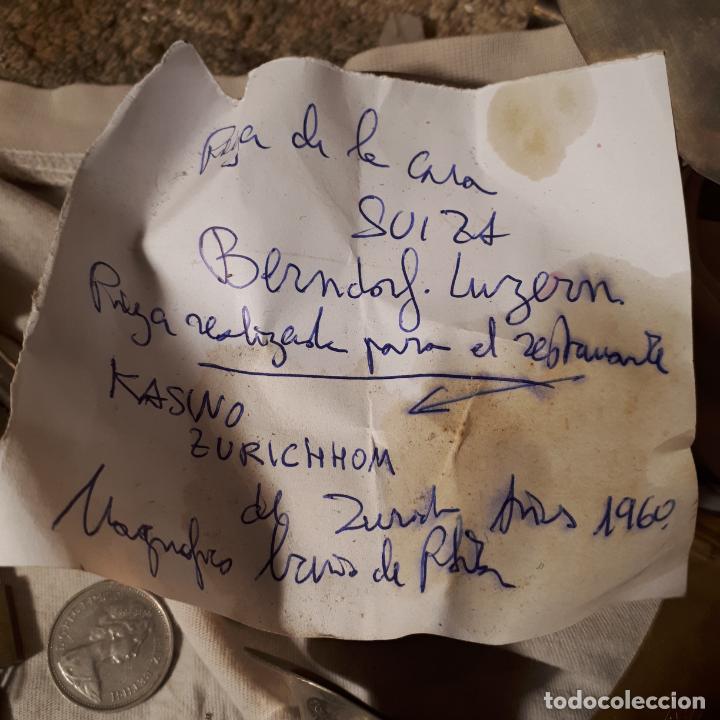 Pza de la casa
SUIZA
Berndorf. Luzern.
Pieza realizada para el restaurante
KASINO
ZURICHHOM
de Zurich Años 1960.
Magnifico baño de Plata
todocoleccion